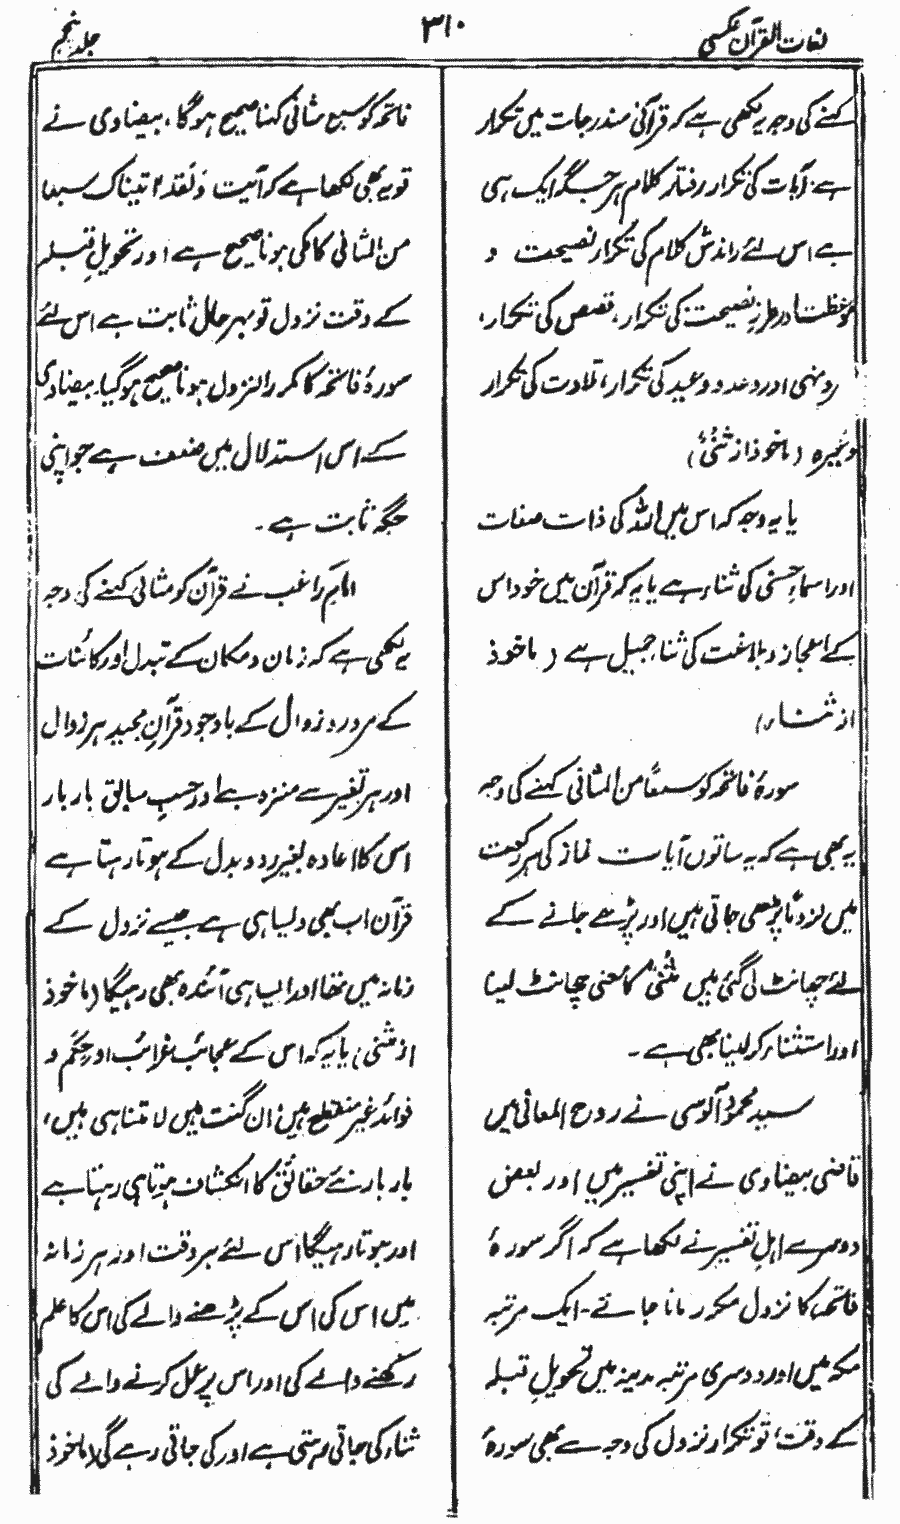 لغات القرآن عکسی
۳۱۰
جلد پنجم
کہنے کی وجہ یہ لکھی ہے کہ قرآنی مندرجات میں تکرار
ہے: آیات کی تکرار رفتار کلام ہر جگہ ایک ہی
ہے اس لئے رانڈش کلام کی تکرار نصیحت و
موعظت اور طرز نصیحت کی تکرار، قصص کی تکرار،
ونہی اور وعدہ و وعید کی تکرار، تلاوت کی تکرار
وغیرہ (ماخوذ از ثنیٰ)
یا یہ وجہ کہ اس میں اللہ کی ذات صفات
اور اسماءِ حسنیٰ کی ثناء ہے یا یہ کہ قرآن میں خود اس
کے اعجاز و بلاغت کی ثناء جمیل ہے (ماخوذ
از ثناء)
سورۂ فاتحہ کو سبعًا من المثانی کہنے کی وجہ
یہ بھی ہے کہ یہ ساتوں آیات نماز کی ہر رکعت
میں لزومًا پڑھی جاتی ہیں اور پڑھے جانے کے
لئے چھانٹ لی گئی ہیں ثنیٰ کا معنی چھانٹ لینا
اور استثناء کر لینا بھی ہے۔
سید محمود آلوسی نے روح المعانی میں
قاضی بیضاوی نے اپنی تفسیر میں اور بعض
دوسرے اہلِ تفسیر نے لکھا ہے کہ اگر سورۂ
فاتحہ کا نزول مکرر مانا جائے۔ ایک مرتبہ
مکہ میں اور دوسری مرتبہ مدینہ میں تحویلِ قبلہ
کے وقت، تو تکرار نزول کی وجہ سے بھی سورۂ
فاتحہ کو سبع مثانی کہنا صحیح ہوگا، بیضاوی نے
تو یہ بھی لکھا ہے کہ آیت وَلَقَدْ اٰتَیْنَاکَ سبعا
من المثانی کا مکی ہونا صحیح ہے اور تحویلِ قبلہ
کے وقت نزول تو بہر حال ثابت ہے اس لئے
سورۂ فاتحہ کا مکرر النزول ہونا صحیح ہو گیا۔ بیضاوی
کے اس استدلال میں ضعف ہے جو اپنی
جگہ ثابت ہے۔
امام راغب نے قرآن کو مثانی کہنے کی وجہ
یہ لکھی ہے کہ زمان و مکان کے تبدل اور کائنات
کے مرور و زوال کے باوجود قرآنِ مجید ہر زوال
اور ہر تغیر سے منزہ ہے اور حسبِ سابق بار بار
اس کا اعادہ بغیر رد و بدل کے ہوتا رہتا ہے
قرآن اب بھی ویسا ہی ہے جیسے نزول کے
زمانہ میں تھا اور ایسا ہی آئندہ بھی رہیگا (ماخوذ
از ثنیٰ) یا یہ کہ اس کے عجائب غرائب اور حِکَم و
فوائد غیر منقطع ہیں: ان گنت ہیں لا متناہی ہیں،
بار بار نئے حقائق کا انکشاف ہوتا ہی رہتا ہے
اور ہوتا رہیگا اس لئے ہر وقت اور ہر زمانہ
میں اس کی اس کے پڑھنے والے کی اس کا علم
رکھنے والے کی اور اس پر عمل کرنے والے کی
ثناء کی جاتی رہتی ہے اور کی جاتی رہے گی (ماخوذ